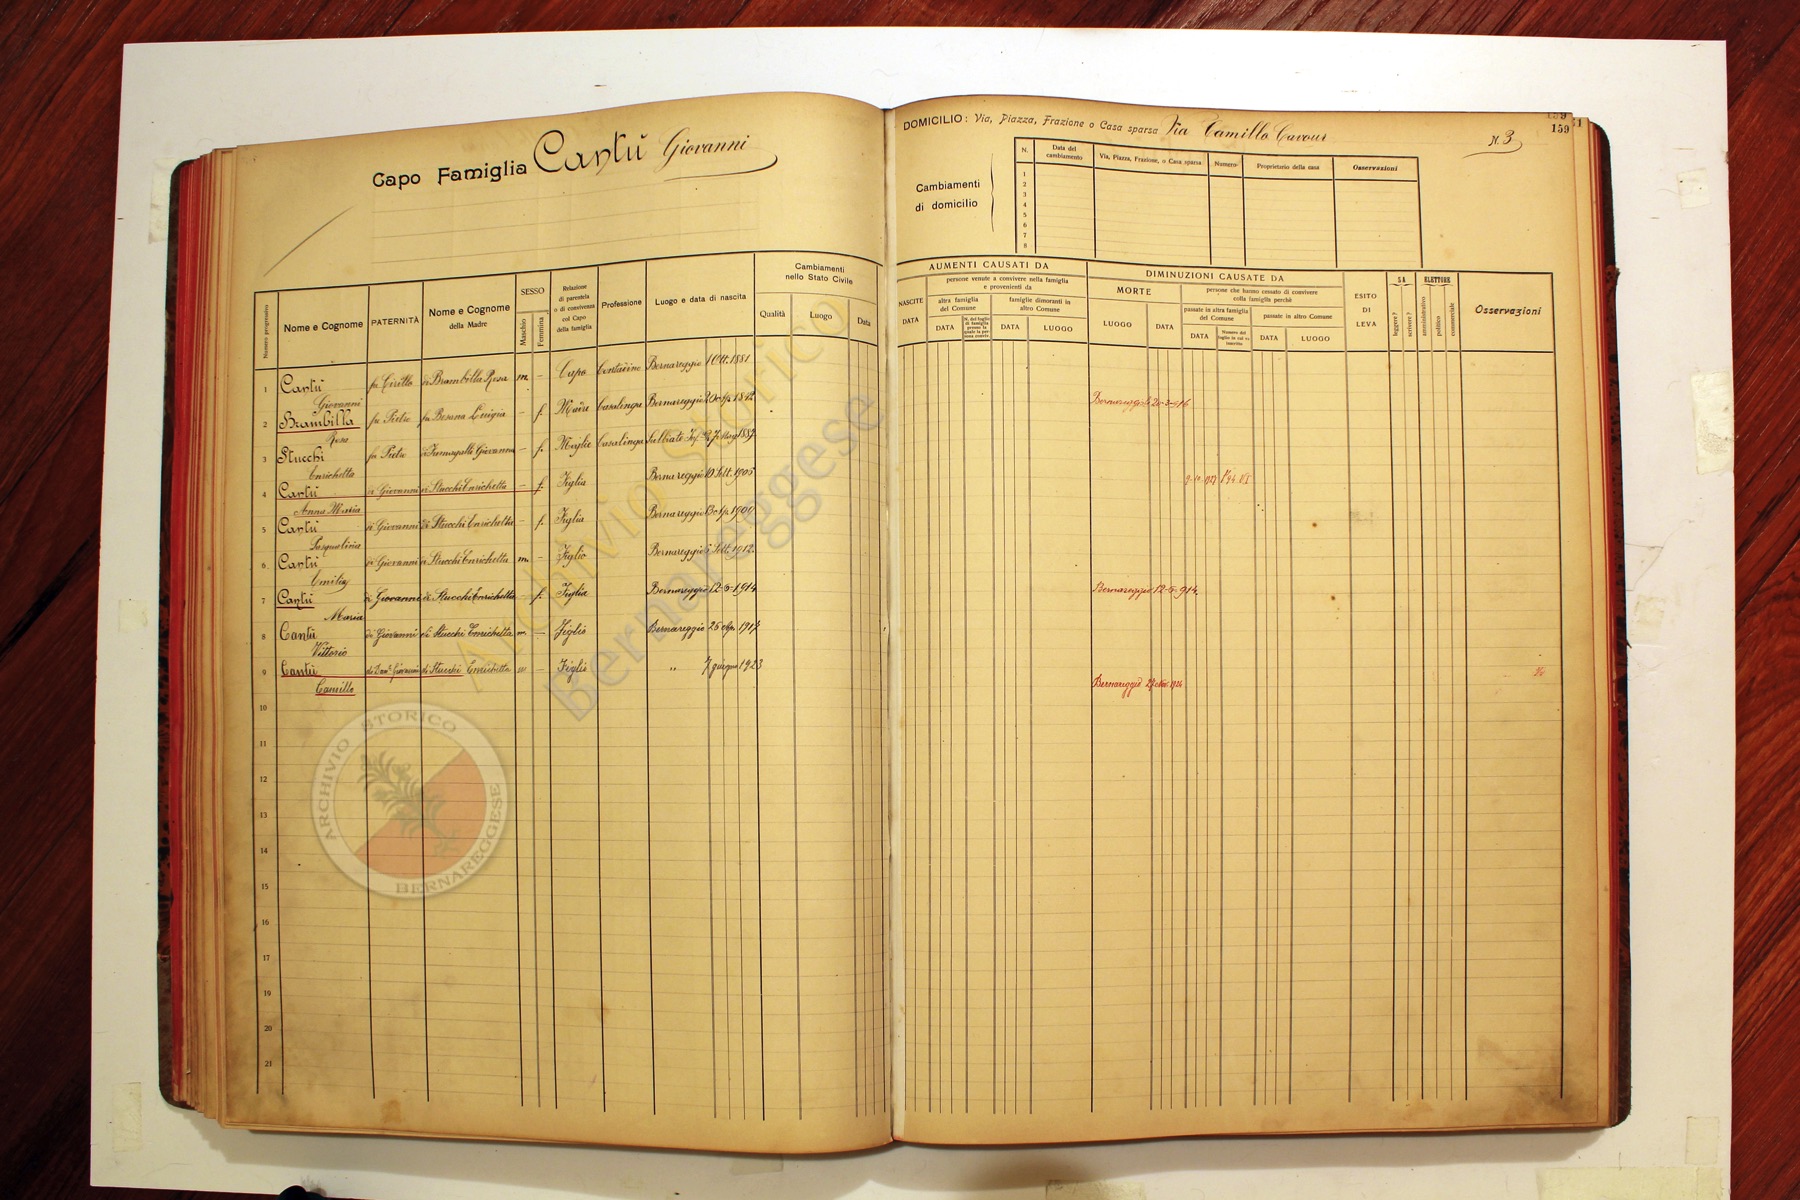 Capo Famiglia Cantù Giovanni
DOMICILIO: Via, Piazza, Frazione o Casa sparsa Via Camillo Cavour
N. 3
159
Cambiamenti di domicilio
N. Data del cambiamento Via, Piazza, Frazione, o Casa sparsa Numero Proprietario della casa Osservazioni
1
2
3
4
5
6
7
8
Numero progressivo
Nome e Cognome
PATERNITÀ
Nome e Cognome della Madre
SESSO
Maschio
Femmina
Relazione di parentela o di convivenza col Capo della famiglia
Professione
Luogo e data di nascita
Cambiamenti nello Stato Civile
Qualità Luogo Data
AUMENTI CAUSATI DA
NASCITE
DATA
persone venute a convivere nella famiglia e provenienti da
altra famiglia del Comune
DATA
N. del foglio di famiglia presso la quale la persona convive
famiglie dimoranti in altro Comune
DATA LUOGO
DIMINUZIONI CAUSATE DA
MORTE
LUOGO DATA
persone che hanno cessato di convivere colla famiglia perchè
passate in altra famiglia del Comune
DATA
Numero del foglio in cui è inscritto
passate in altro Comune
DATA LUOGO
ESITO DI LEVA
SA
leggere?
scrivere?
ELETTORE
amministrativo
politico
commerciale
Osservazioni
1 Cantù Giovanni fu Cirillo di Brambilla Rosa m. - Capo Contadino Bernareggio 1 Ott. 1881
2 Brambilla Rosa fu Pietro fu Besana Luigia - f. Madre Casalinga Bernareggio Bernareggio
3 Stucchi Enrichetta fu Pietro di Fumagalli Giovanna - f. Moglie Casalinga Sulbiate
4 Cantù Anna Maria di Giovanni di Stucchi Enrichetta - f. Figlia Bernareggio Sett. 1905
5 Cantù Pasqualina di Giovanni di Stucchi Enrichetta - f. Figlia Bernareggio 1909
6 Cantù Emilio di Giovanni di Stucchi Enrichetta m. - Figlio Bernareggio Sett. 1912
7 Cantù Maria di Giovanni di Stucchi Enrichetta - f. Figlia Bernareggio 12-5-1914 Bernareggio 12-5-914
8 Cantù Vittorio di Giovanni di Stucchi Enrichetta m. - Figlio Bernareggio 25 Apr. 1917
9 Cantù Camillo di Giovanni di Stucchi Enrichetta m - Figlio " 7 giugno 1923 Bernareggio 27 Nov. 1924
10
11
12
13
14
15
16
17
18
19
20
21
Archivio Storico
Bernareggese
ARCHIVIO STORICO
BERNAREGGESE